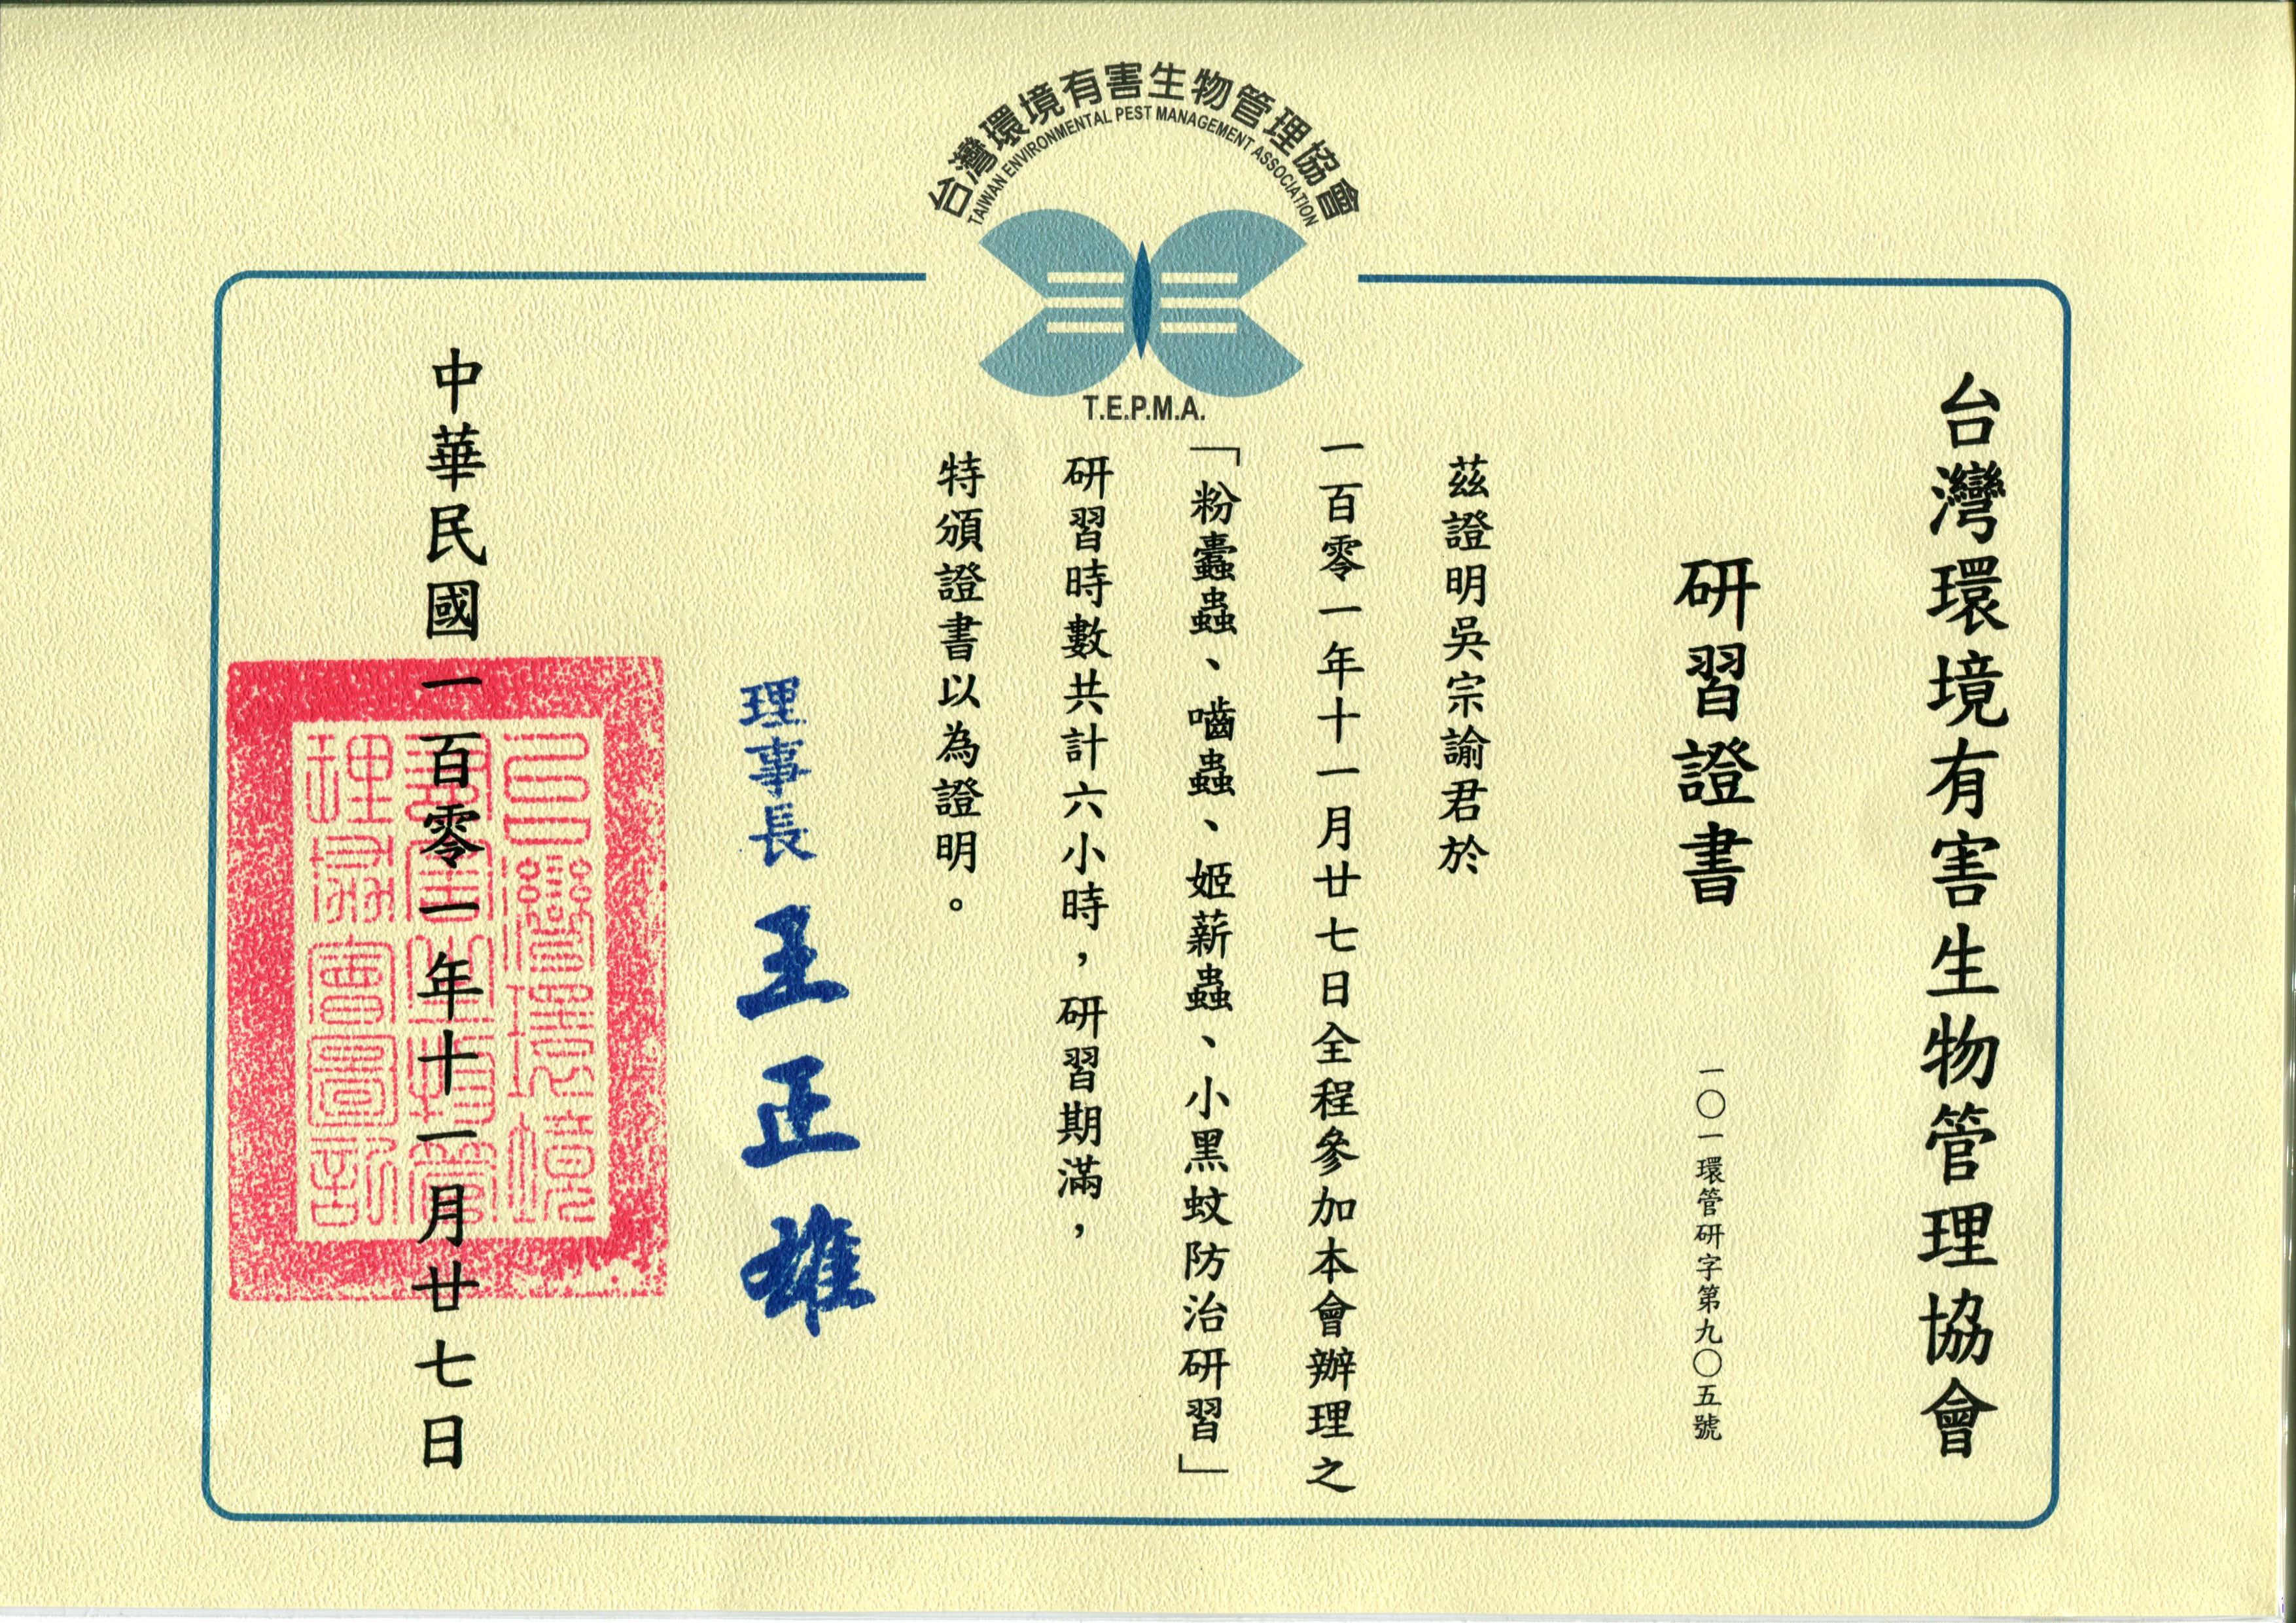 台灣環境有害生物管理協會
TAIWAN ENVIRONMENTAL PEST MANAGEMENT ASSOCIATION
T.E.P.M.A.
台灣環境有害生物管理協會
研習證書
一〇一環管研字第九〇五號
茲證明吳宗諭君於
一百零一年十一月廿七日全程參加本會辦理之
「粉蠹蟲、嚙蟲、姬薪蟲、小黑蚊防治研習」
研習時數共計六小時，研習期滿，
特頒證書以為證明。
理事長 王正雄
中華民國一百零一年十一月廿七日
台灣環境
有害生物管
理協會圖記